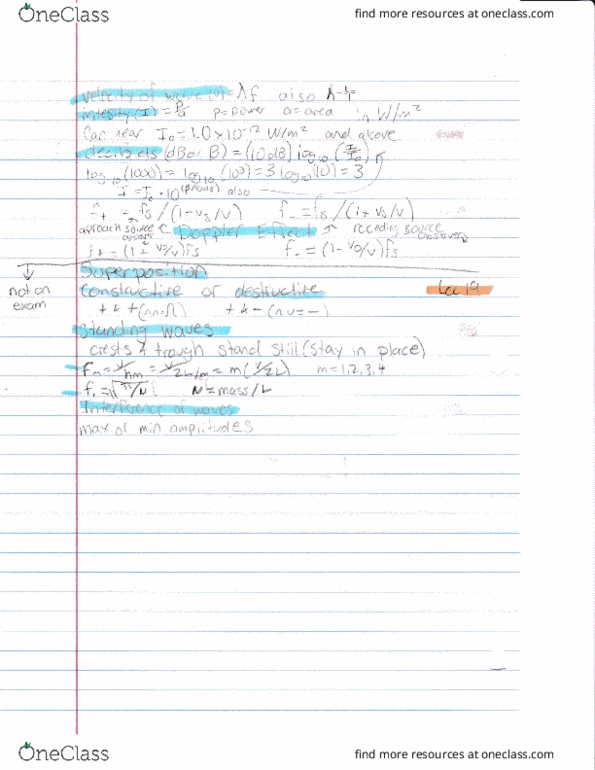 OneClass
find more resources at oneclass.com
velocity of wave (v) = λf also
intensity (I) = P/a p=power a=area in W/m²
Can hear I₀ = 1.0 × 10⁻¹² W/m² and above
decibels (dB or B) = (10 dB) log₁₀ (I/I₀)
log₁₀ (1000) = log₁₀ (10³) = 3 log₁₀ (10) = 3
I = I₀ · 10 also
f₊ = fs / (1 - vs/v) f₋ = fs / (1 + vs/v)
aproach source Doppler Effect receding source
observer observer
f₊ = (1 + vo/v)fs f₋ = (1 - vo/v)fs
Superposition
not on exam
constructive or destructive Lec 19
Standing waves
crests & trough stand still (stay in place)
fm = v/λm = v/2L/m = m (v/2L) m = 1, 2, 3, 4
= mass/L
of waves
max or min amplitudes
OneClass
find more resources at oneclass.com